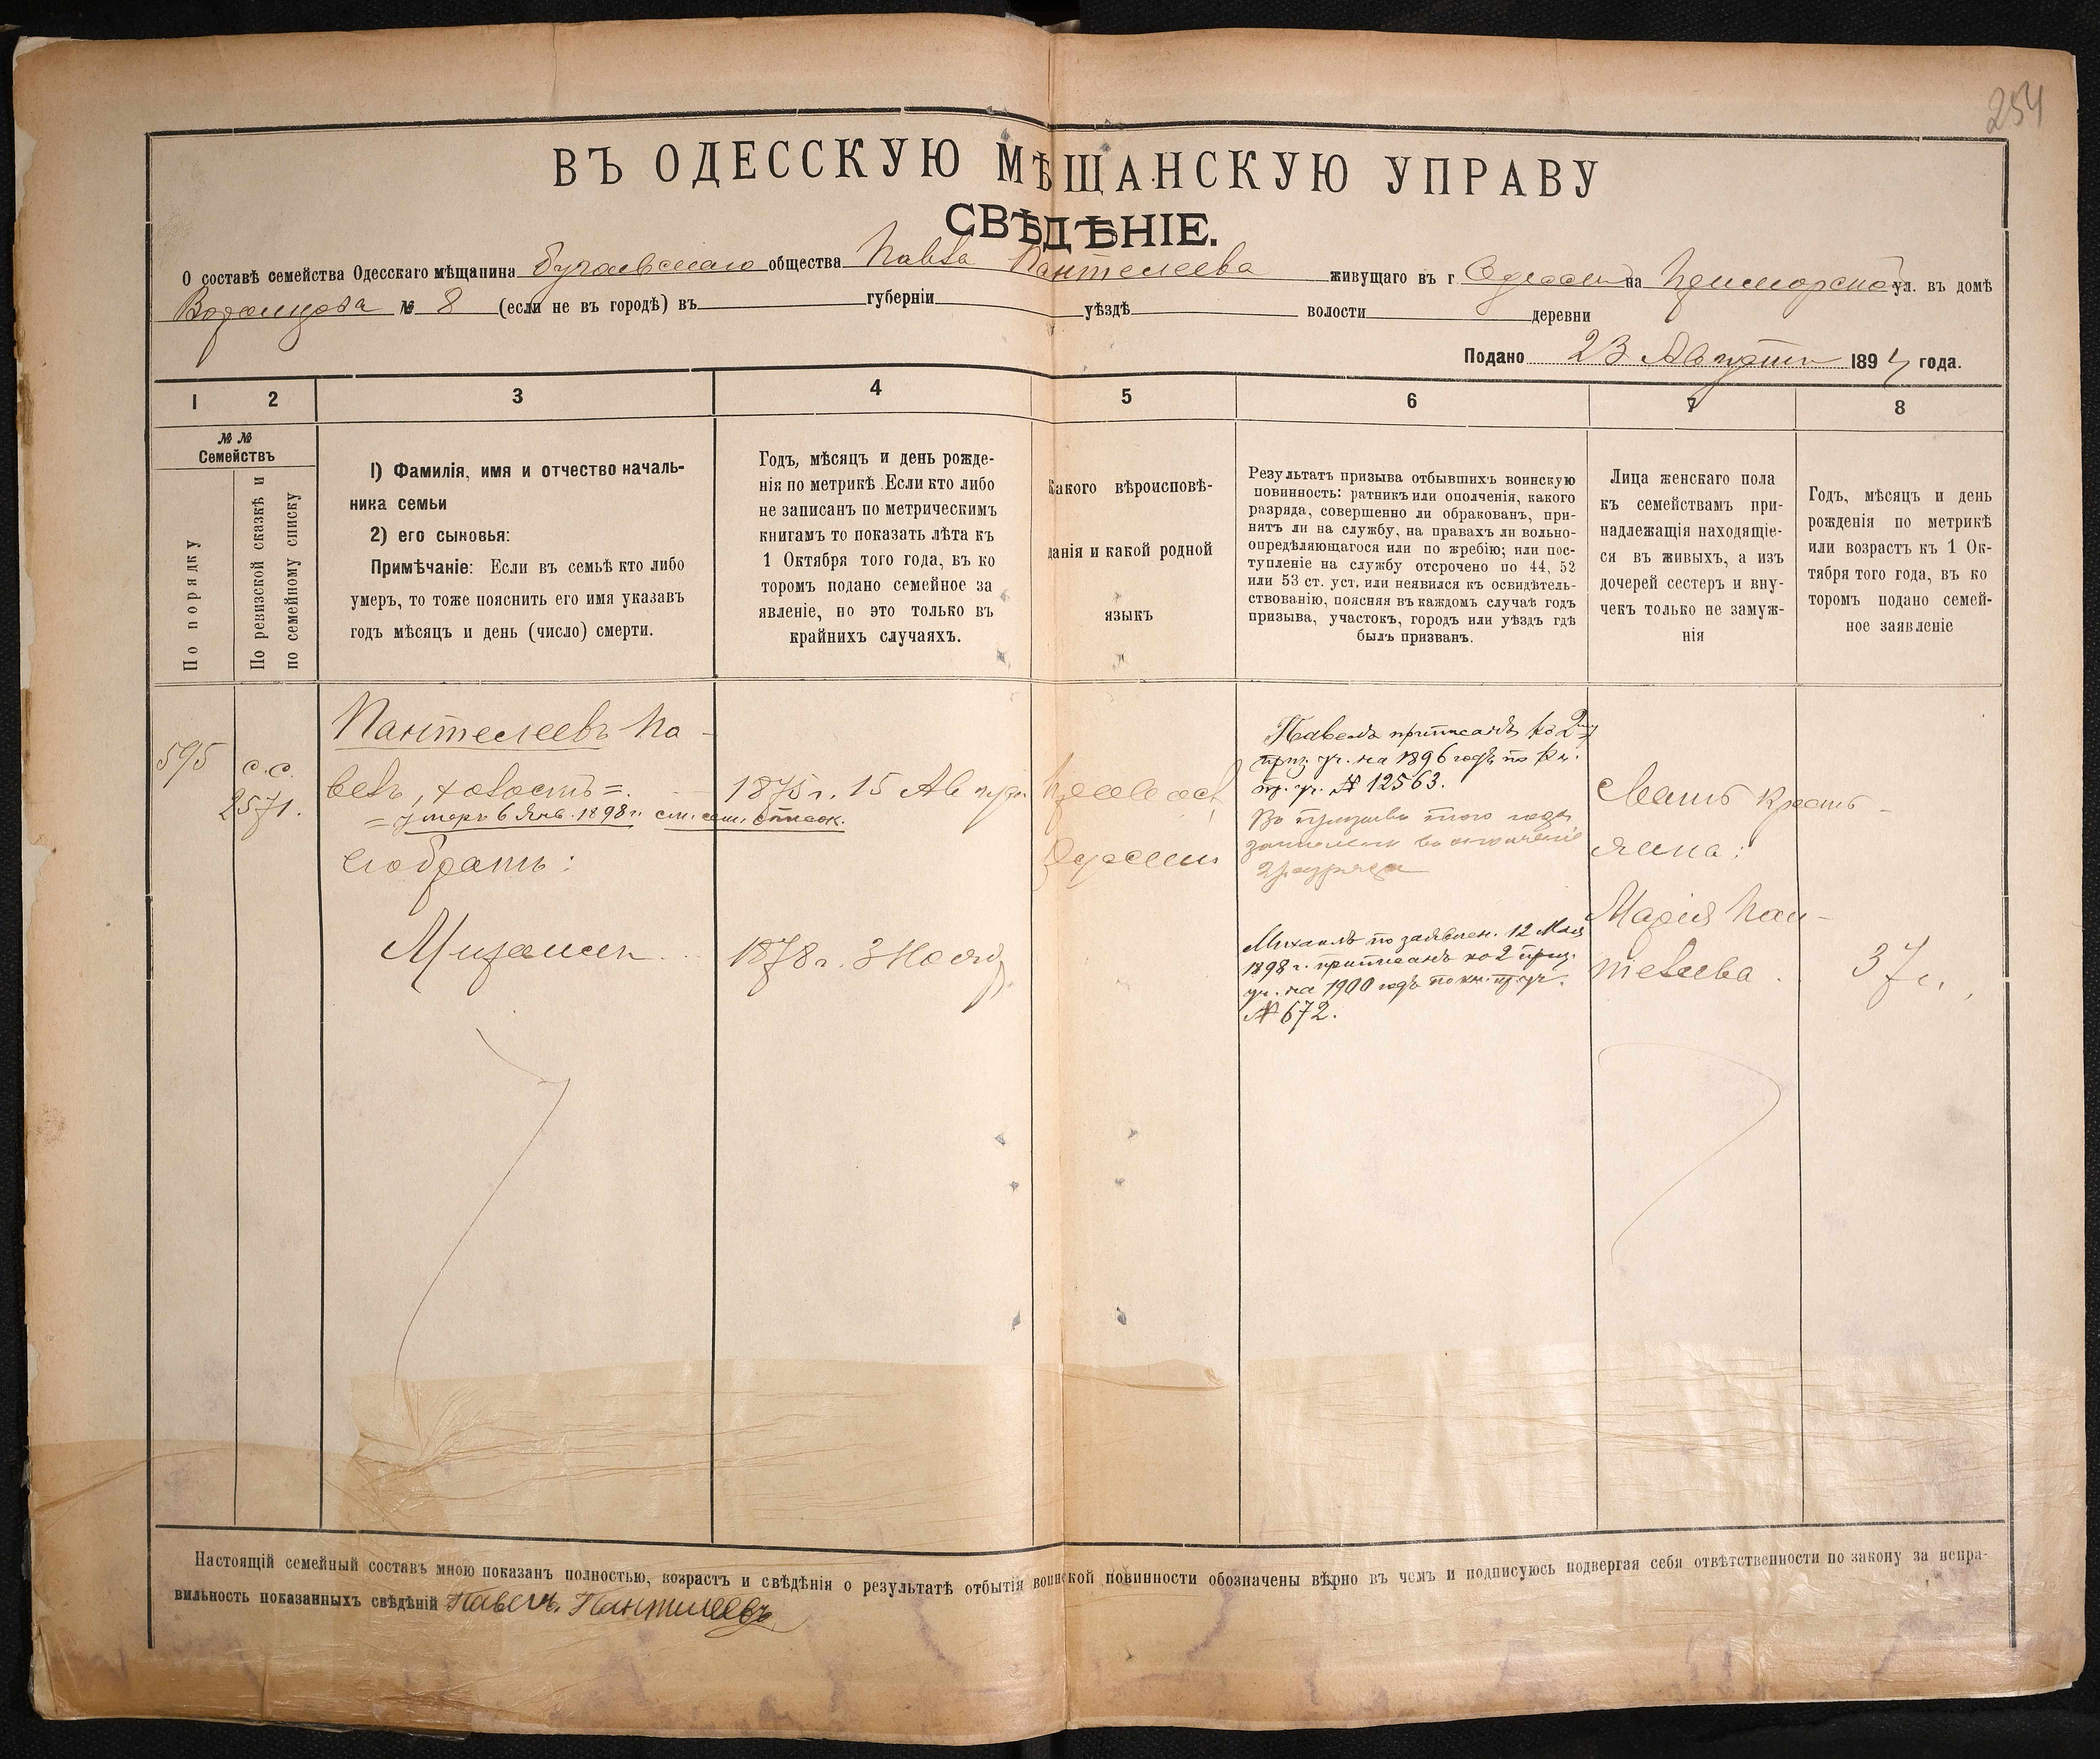 254
ВЪ ОДЕССКУЮ МѢЩАНСКУЮ УПРАВУ
СВѢДѢНІЕ.
О составѣ семейства Одесскаго мѣщанина общества Павла Пантелеева живущаго въ г. Одессѣ на Приморской ул. въ домѣ
Воронцова № 8 (если не въ городѣ) въ губерніи уѣздѣ волости деревни
Подано 23 Августа 1894 года.
1 2 3 4 5 6 7 8
№ №
Семействъ
По порядку
По ревизской сказкѣ и
по семейному списку
1) Фамилія, имя и отчество началь-
ника семьи
2) его сыновья:
Примѣчаніе: Если въ семьѣ кто либо
умеръ, то тоже пояснить его имя указавъ
годъ мѣсяцъ и день (число) смерти.
Годъ, мѣсяцъ и день рожде-
нія по метрикѣ Если кто либо
не записанъ по метрическимъ
книгамъ то показать лѣта къ
1 Октября того года, въ ко
торомъ подано семейное за
явленіе, но это только въ
крайнихъ случаяхъ.
Какого вѣроисповѣ-
данія и какой родной
языкъ
Результатъ призыва отбывшихъ воинскую
повинность: ратникъ или ополченія, какого
разряда, совершенно ли обракованъ, при-
нятъ ли на службу, на правахъ ли вольно-
опредѣляющагося или по жребію; или пос-
тупленіе на службу отсрочено по 44, 52
или 53 ст. уст. или неявился къ освидѣтель-
ствованію, поясняя въ каждомъ случаѣ годъ
призыва, участокъ, городъ или уѣздъ гдѣ
былъ призванъ.
Лица женскаго пола
къ семействамъ при-
надлежащія находящіе-
ся въ живыхъ, а изъ
дочерей сестеръ и вну-
чекъ только не замуж-
нія
Годъ, мѣсяцъ и день
рожденія по метрикѣ
или возрастъ къ 1 Ок-
тября того года, въ ко
торомъ подано семей-
ное заявленіе
595
с.с.
2571.
Пантелеевъ Па-
велъ, холостъ =.
= умеръ 6 Янв. 1898 г. см. сем. список.
его братъ:
Михаилъ
1875 г. 15 Августа
1878 г. 3 Ноября
Православ.
Русскій
Павелъ приписанъ ко 2му
приз. уч. на 1896 годъ по кн.
пр. уч. № 12563.
Въ призывъ того года
зачисленъ въ ополченіе
2 разряда
Михаилъ по заявлен. 12 Мая
1898 г. приписанъ ко 2 приз.
уч. на 1900 годъ по кн. пр. уч.
№ 672.
Марія Пан-
телеева.
37 л.
Настоящій семейный составъ мною показанъ полностью, возрастъ и свѣдѣнія о результатѣ отбытія воинской повинности обозначены вѣрно въ чемъ и подписуюсь подвергая себя отвѣтственности по закону за непра-
вильность показанныхъ свѣдѣній Павелъ Пантилеевъ